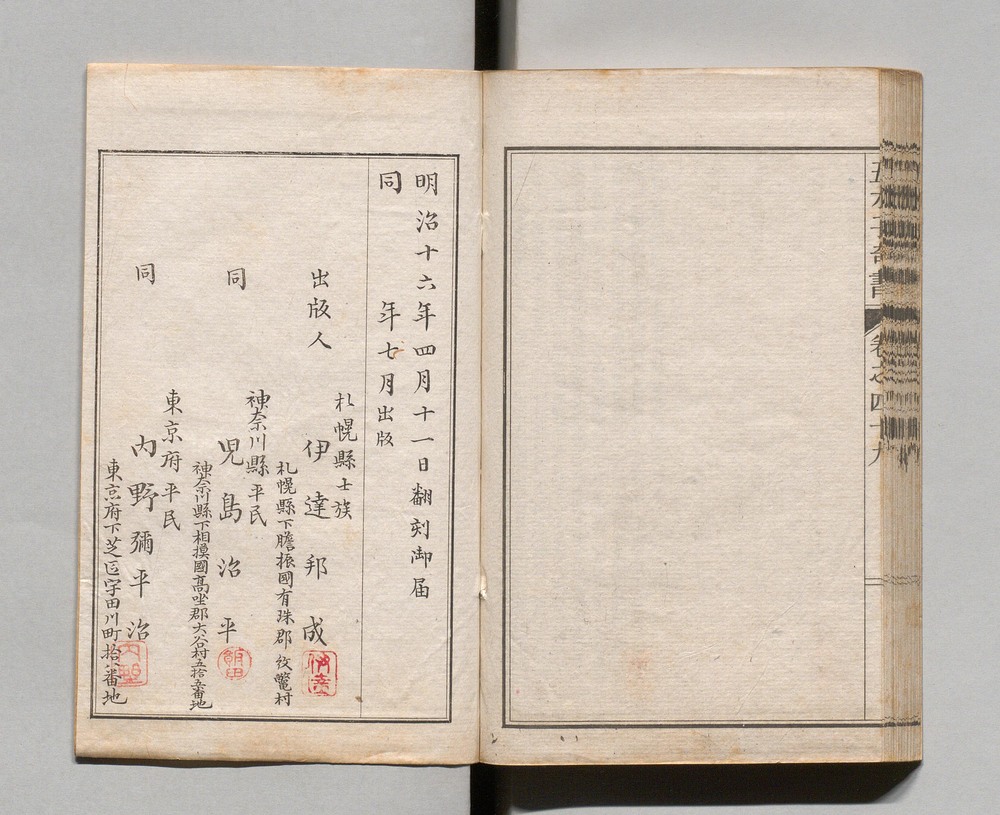 卷之四十九
明治十六年四月十一日翻刻御届
同年七月出版
札幌縣士族
出版人 伊達邦成
札幌縣下膽振國有珠郡紋鼈村
神奈川縣平民
同 児島治平
神奈川縣下相摸國高坐郡大谷村五拾五番地
東京府平民
同 内野彌平治
東京府下芝区宇田川町拾八番地